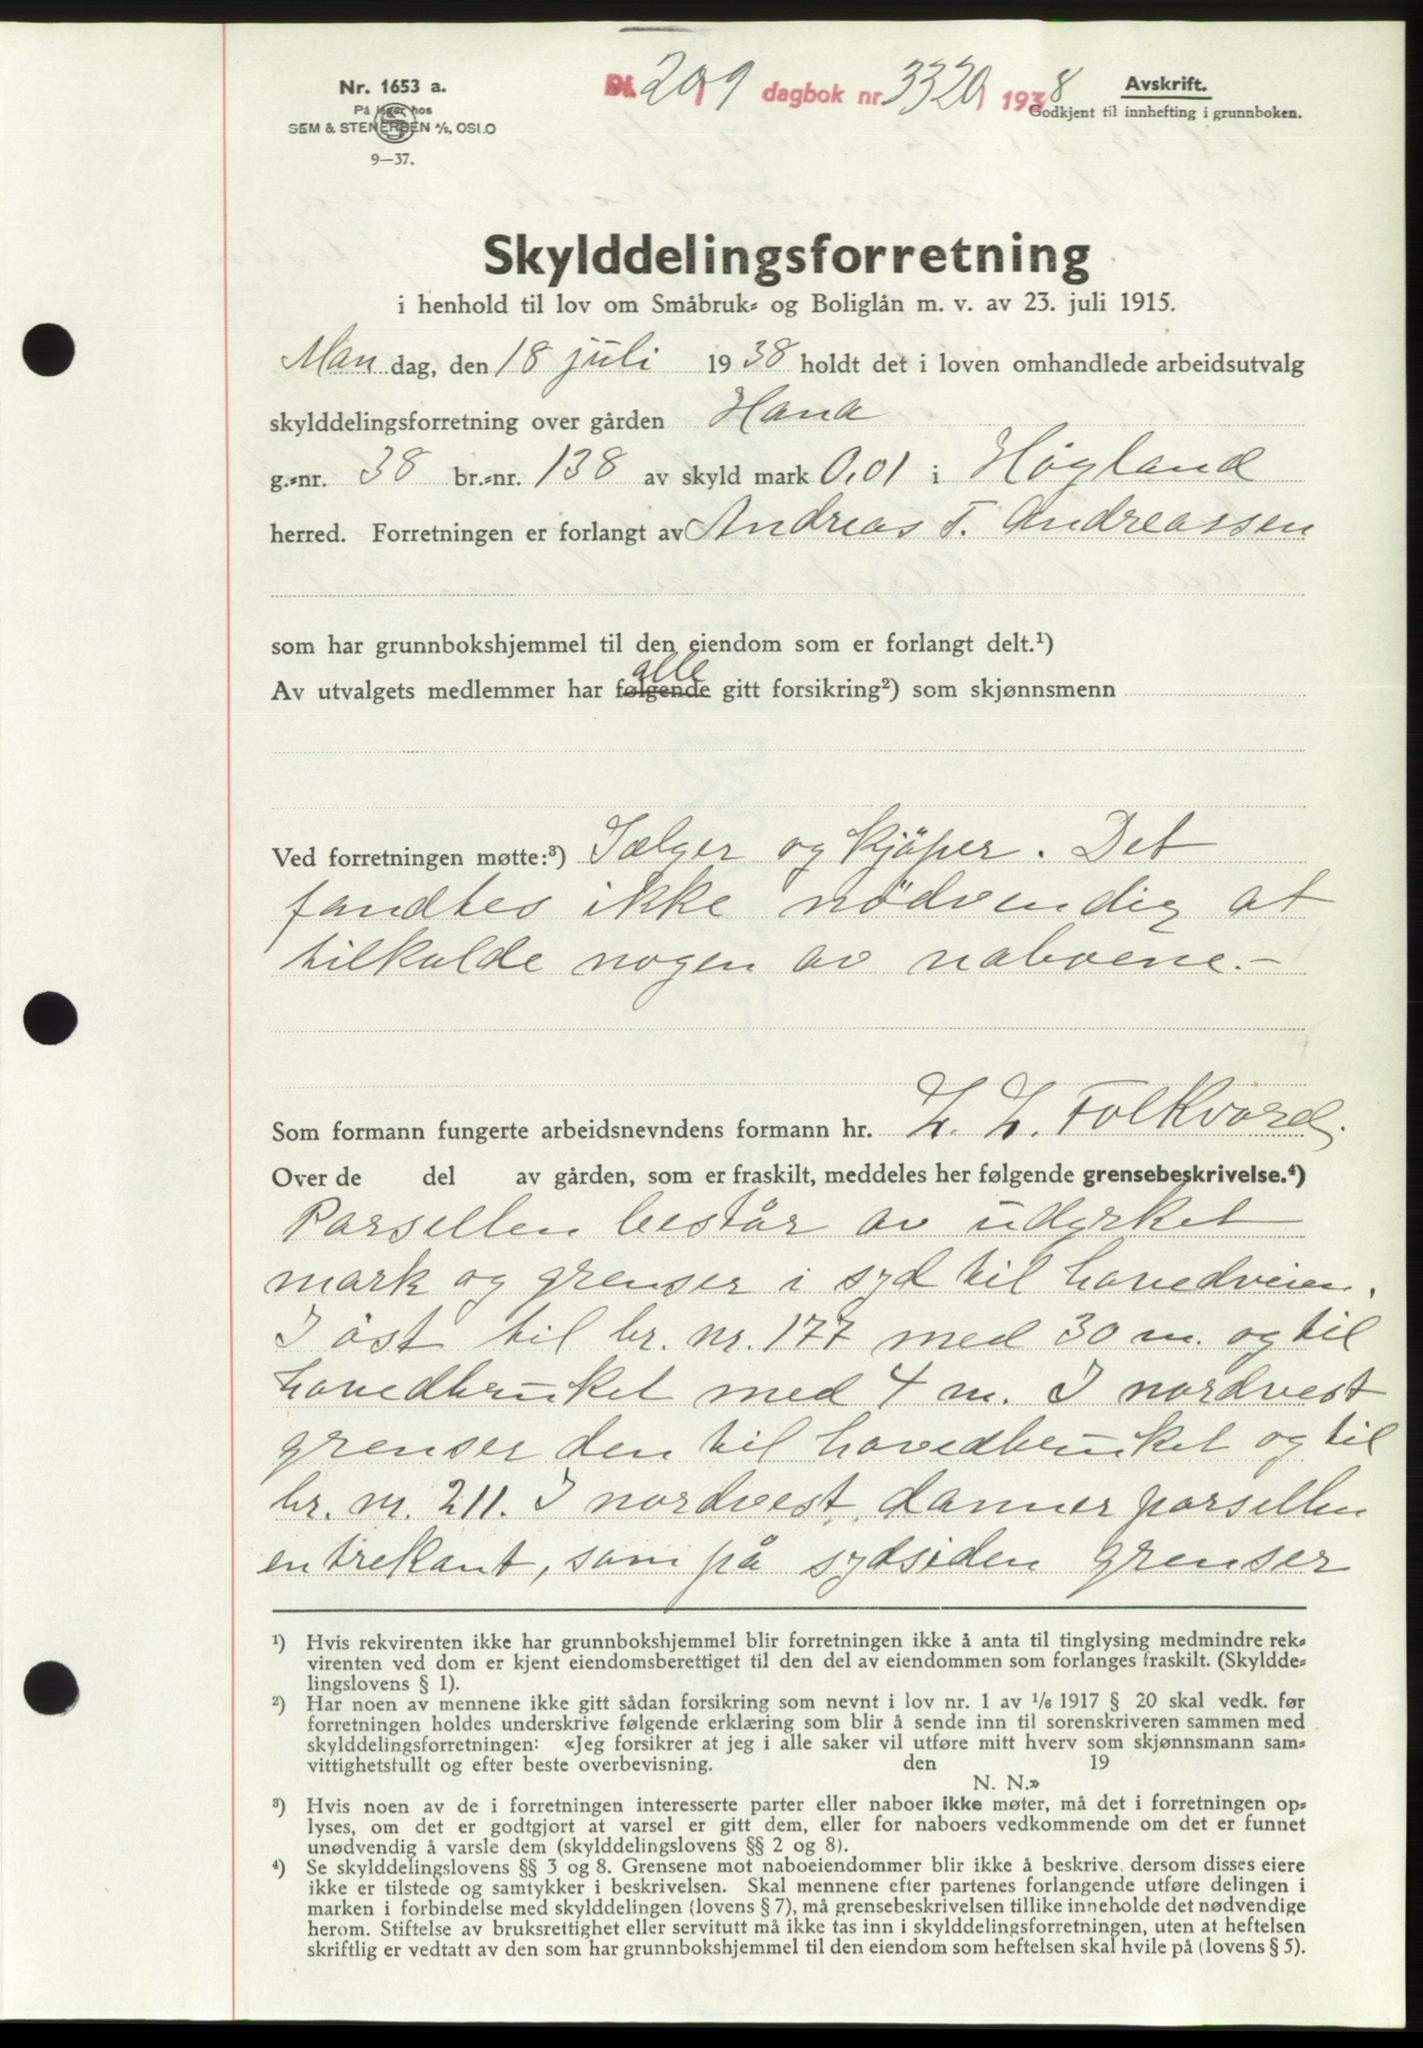 Nr. 1653 a.
På lager hos
SEM & STENERSEN A/S, OSLO
9—37.
209 dagbok nr. 3320 1938
Avskrift.
Godkjent til innhefting i grunnboken.
Skylddelingsforretning
i henhold til lov om Småbruk- og Boliglån m. v. av 23. juli 1915.
Man dag, den 18 juli 1938 holdt det i loven omhandlede arbeidsutvalg
skylddelingsforretning over gården Hana
g.-nr. 38 br.-nr. 138 av skyld mark 0,01 i Høyland
herred. Forretningen er forlangt av Andreas T. Andreassen
som har grunnbokshjemmel til den eiendom som er forlangt delt.¹)
alle
Av utvalgets medlemmer har følgende gitt forsikring²) som skjønnsmenn
Ved forretningen møtte:³) Sælger og kjöper. Det
fandtes ikke nödvendig at
tilkalde nogen av naboene.-
Som formann fungerte arbeidsnevndens formann hr. Z. Z. Folkvord.
Over de del av gården, som er fraskilt, meddeles her følgende grensebeskrivelse.⁴)
Parsellen består av udyrket
mark og grenser i syd til hovedveien.
I öst til br. nr. 177 med 30 m. og til
hovedbruket med 4 m. I nordvest
grenser den til hovedbruket og til
br. nr. 211. I nordvest danner parsellen
en trekant, som på sydsiden grenser
¹) Hvis rekvirenten ikke har grunnbokshjemmel blir forretningen ikke å anta til tinglysing medmindre rek-
virenten ved dom er kjent eiendomsberettiget til den del av eiendommen som forlanges fraskilt. (Skyldde-
lingslovens § 1).
²) Har noen av mennene ikke gitt sådan forsikring som nevnt i lov nr. 1 av 1/6 1917 § 20 skal vedk. før
forretningen holdes underskrive følgende erklæring som blir å sende inn til sorenskriveren sammen med
skylddelingsforretningen: «Jeg forsikrer at jeg i alle saker vil utføre mitt hverv som skjønnsmann sam-
vittighetsfullt og efter beste overbevisning. den 19
N. N.»
³) Hvis noen av de i forretningen interesserte parter eller naboer ikke møter, må det i forretningen op-
lyses, om det er godtgjort at varsel er gitt dem, eller for naboers vedkommende om det er funnet
unødvendig å varsle dem (skylddelingslovens §§ 2 og 8).
⁴) Se skylddelingslovens §§ 3 og 8. Grensene mot naboeiendommer blir ikke å beskrive, dersom disses eiere
ikke er tilstede og samtykker i beskrivelsen. Skal mennene efter partenes forlangende utføre delingen i
marken i forbindelse med skylddelingen (lovens § 7), må grensebeskrivelsen tillike inneholde det nødvendige
herom. Stiftelse av bruksrettighet eller servitutt må ikke tas inn i skylddelingsforretningen, uten at heftelsen
skriftlig er vedtatt av den som har grunnbokshjemmel til den eiendom som heftelsen skal hvile på (lovens § 5).